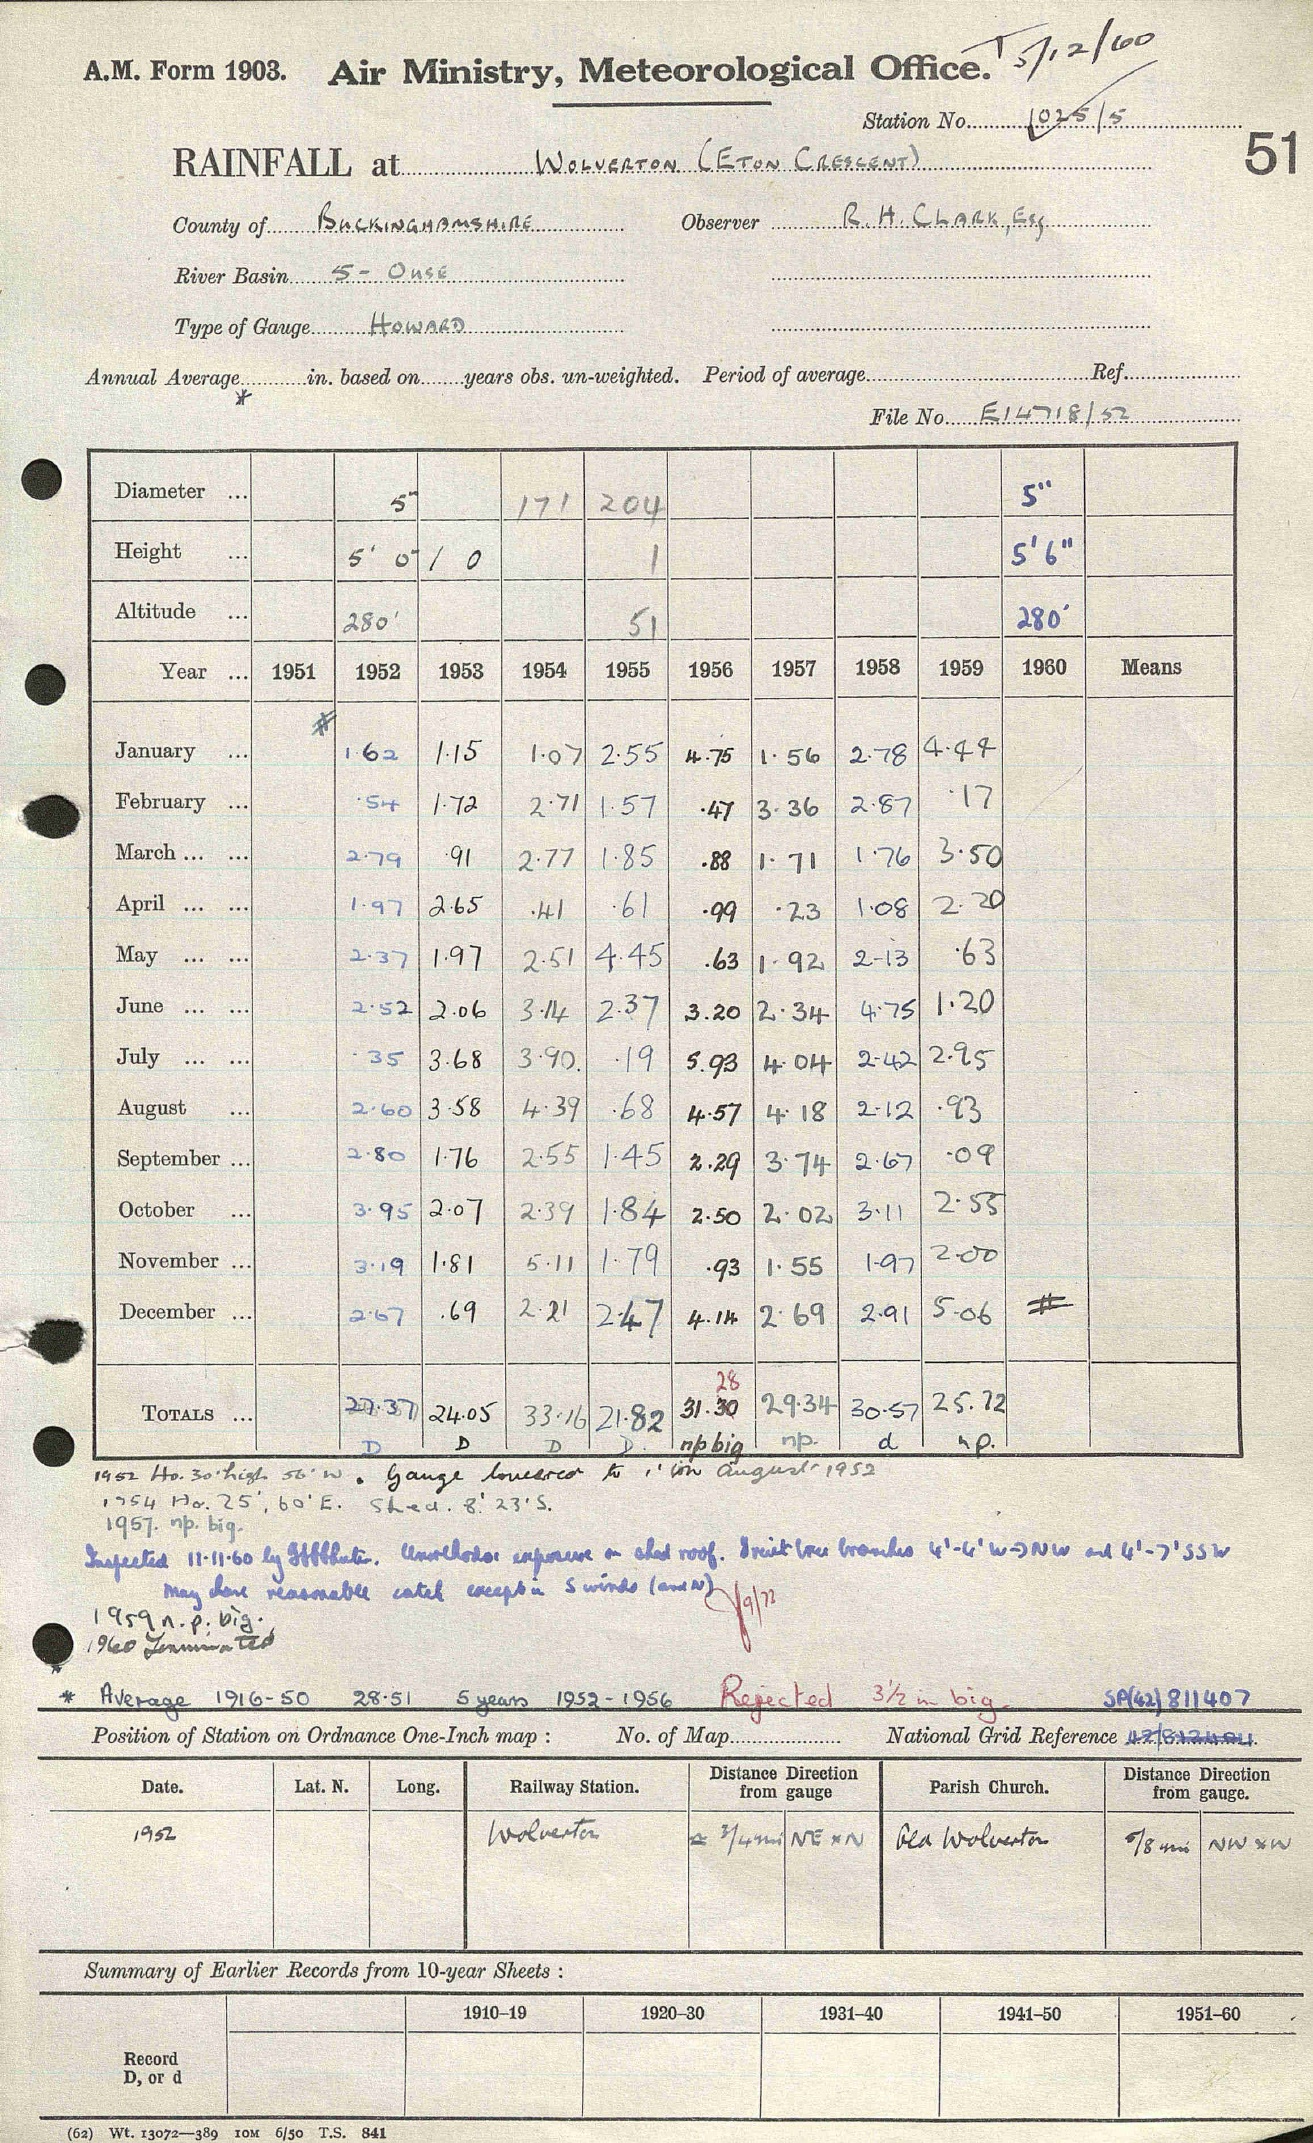 A.M. Form 1903. Air Ministry, Meteorological Office. T 5/12/60
Station No. 1025/5
51
RAINFALL at WOLVERTON (ETON CRESCENT)
County of BUCKINGHAMSHIRE Observer R. H. CLARK, Esq
River Basin 5 - OUSE
Type of Gauge HOWARD
Annual Average * in. based on years obs. un-weighted. Period of average Ref.
File No. E14718/52
Diameter ... 5" 171 204 5"
Height ... 5' 0" / 0 1 5'6"
Altitude ... 280' 51 280'
Year ... 1951 1952 1953 1954 1955 1956 1957 1958 1959 1960 Means
#
January ... 1.62 1.15 1.07 2.55 4.75 1.56 2.78 4.44
February ... .54 1.72 2.71 1.57 .47 3.36 2.87 .17
March ... ... 2.79 .91 2.77 1.85 .88 1.71 1.76 3.50
April ... ... 1.97 2.65 .41 .61 .99 .23 1.08 2.20
May ... ... 2.37 1.97 2.51 4.45 .63 1.92 2.13 .63
June ... ... 2.52 2.06 3.14 2.37 3.20 2.34 4.75 1.20
July ... ... .35 3.68 3.90 .19 5.93 4.04 2.42 2.95
August ... 2.60 3.58 4.39 .68 4.57 4.18 2.12 .93
September ... 2.80 1.76 2.55 1.45 2.29 3.74 2.67 .09
October ... 3.95 2.07 2.39 1.84 2.50 2.02 3.11 2.55
November ... 3.19 1.81 5.11 1.79 .93 1.55 1.97 2.00
December ... 2.67 .69 2.21 2.47 4.14 2.69 2.91 5.06 #
28
TOTALS ... 27.37 24.05 33.16 21.82 31.30 29.34 30.57 25.72
D D D D. np big np. d n.p.
1952 Ho. 30' high 56' W. Gauge lowered to 1' in August 1952
1954 Ho. 25', 60' E. Shed. 8'. 23' S.
1957. np. big.
Inspected 11.11.60 by Unorthodox exposure on shed roof. Fruit tree branches 4'-4' W→NW and 4'-7' SSW
May have reasonable catch except in S winds (and N)
1959 n.p. big.
1960 Terminated
* Average 1916-50 28.51 5 years 1952-1956 Rejected 3½ in big SP(42) 811407
Position of Station on Ordnance One-Inch map : No. of Map National Grid Reference
Date. Lat. N. Long. Railway Station. Distance Direction from gauge Parish Church. Distance Direction from gauge.
1952 Wolverton ≏ 3/4 mi NE x N Old Wolverton 5/8 mi NW x W
Summary of Earlier Records from 10-year Sheets :
1910–19 1920–30 1931–40 1941–50 1951–60
Record
D, or d
(62) Wt. 13072—389 10M 6/50 T.S. 841